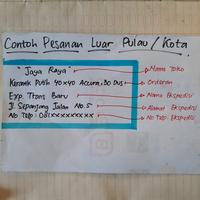 Contoh Pesanan Luar Pulau / Kota
"Jaya Raya" Nama Toko
Keramik Putih 40x40 Accura. 30 Dus Orderan
Exp. Trans Baru Nama Ekspedisi
Jl. Sepanjang Jalan No. 5 Alamat Ekspedisi
No Telp : 081xxxxxxxxx No Telp. Ekspedisi